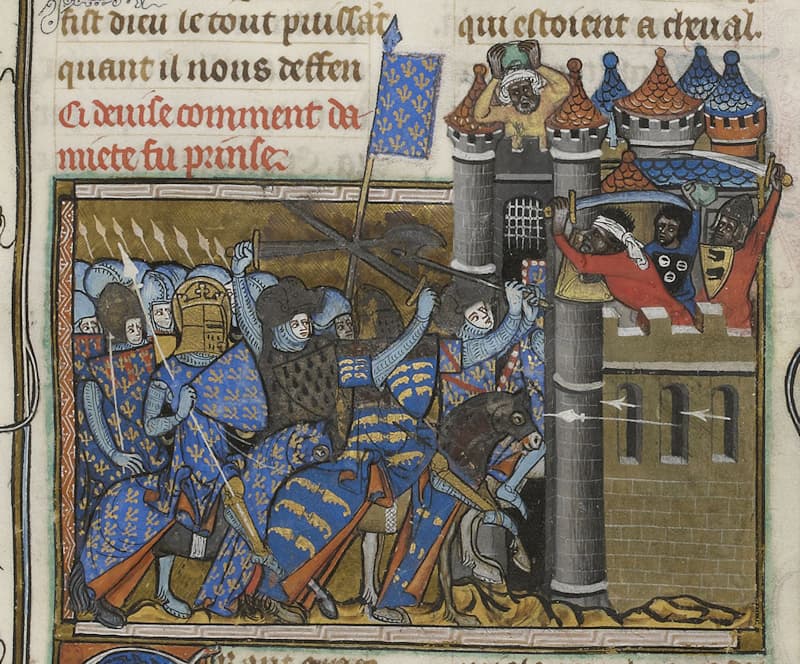 fist dieu le tout puissāt
quant il nous deffen
Ci deuise comment da
miete fu prinse
qui estoient a cheual.